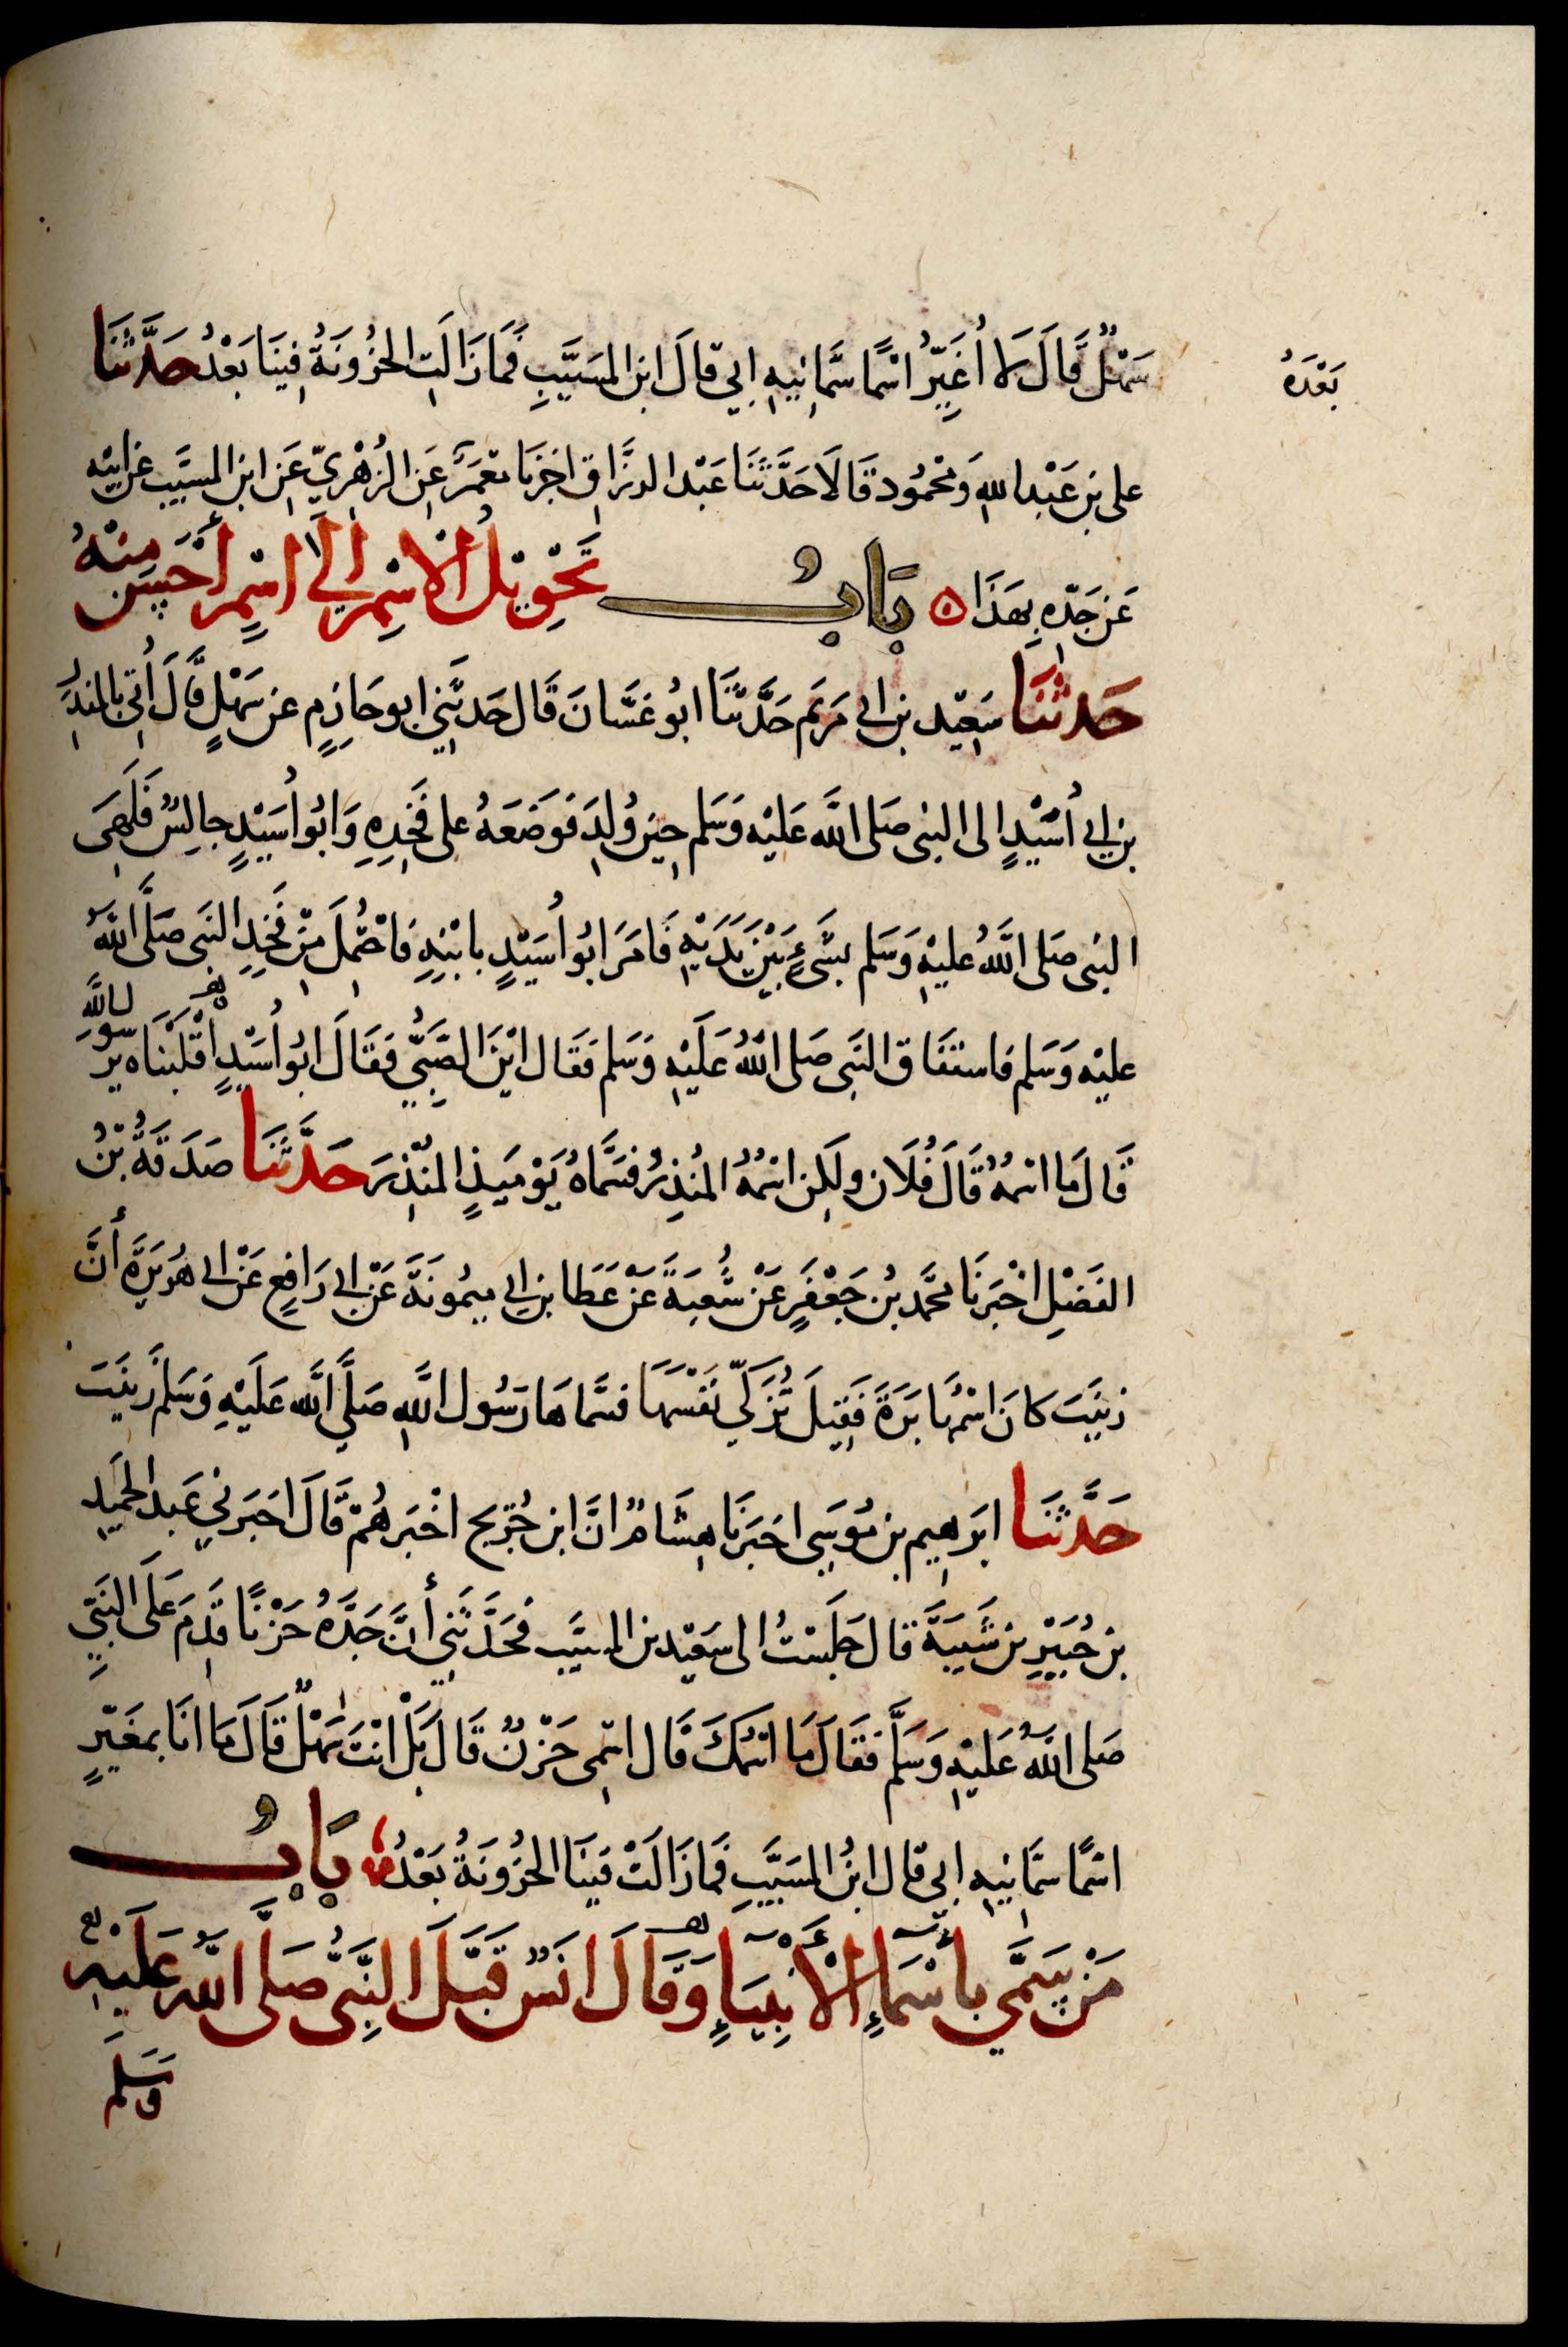 سَهْلٌ قَالَ لَا أُغَيِّرُ اسْمًا سَمَّانِيهِ ابِي قالَ ابن المسَيَّبِ فَمَا زَالَتِ الحُزُونَةُ فِينَا بَعْدُ حَدَّثَنَا
بَعْدَهُ
على بن عَبْدِ اللهِ وَمَحْمُود قَالَا حَدَّثَنَا عَبْد الرزَّاقِ اخبرنَا مَعْمَرٌ عَنِ الزُهْرِيّ عَنِ ابنِ المسيَّب عن ابِيْهِ
عَن جَدّهِ بِهَذَا ه بَابُ تَحْوِيْلُ الْاسْمِ إلَى اسْمٍ أحْسَنَ مِنْهُ
حَدثَنَا سَعِيْد بن ابى مَريَم حَدَّثَنَا ابُو غَسَّانَ قَال حَدثَنِي ابو حَازِمٍ عن سَهْلٍ قَالَ أُتِيَ بالمنذِرِ
بن ابي أُسَيْدٍ الى النبى صَلى اللَّه عَلَيْهِ وَسَلم حِينَ وُلِدَ فَوَضَعَهُ على فَخِذِهِ وَابُو أُسَيْدٍ جالِسٌ فَلَهِىَ
النبى صَلى اللَّهُ عليْهِ وَسَلم بشَىْءٍ بَيْنَ يَدَيْهِ فَامَرَ ابُو أُسَيْدٍ بابْنِهِ فَاحْتُمِلَ مِنْ فَخِذِ النَبى صَلَّى اللَّهُ
عليْهِ وَسَلم فاستفَاق النَبى صَلى اللَّهُ عَلَيْهِ وَسَلم فَقَال ايْنَ الصَبِيُّ فَقَالَ ابُو أُسَيْدٍ اقْلَبْنَاه يرَسُولَ اللَّهِ
قَالَ مَا اسْمُهُ قَالَ فُلَان ولَكِن اسْمُهُ المُنذِرُ فسَمَّاهُ يَوْمَيذٍ المنْذِرَ حَدَّثَنَا صَدَقَةُ بْنُ
الفَضْلِ اخْبَرَنَا محَّمد بْن جَعْفَرٍ عَنْ شُعبَةَ عَنْ عَطَا بن ابى مَيمُونَةَ عَنْ ابى رَافِعٍ عَنْ ابى هُرَيرَةَ أنَّ
زينَبَ كانَ اسْمُهَا بَرَّةَ فَقِيلَ تُزَكِّي نَفْسَهَا فسَمَّاهَا رَسُول اللَّهِ صَلَّي اللَّه عَلَيْهِ وَسَلمَ زَينَبَ
حَدَّثَنَا ابرَهِيم بن مُوسَى اخبَرَنَا هِشَامٌ انَّ ابن جُرَيج اخْبَرَهُمْ قَالَ اخبَرني عَبد الحَمِيد
بن جُبَيْرِ بن شَيبَةَ قال جَلَسْتُ الى سَعِيْد بن المسَيَّب فحَدَّثَنِي أنَّ جَدَّهُ حَزْنًا قَدِمَ عَلَى النَبِيّ
صَلى اللَّهُ عَليْهِ وَسَلَّم فَقَالَ مَا اسْمُكَ قَال اسْمِى حَزْنٌ قَالَ بَلْ انْتَ سَهْلٌ قَالَ مَا انَا بمغَيّرٍ
اسْمًا سَمَّانِيهِ ابِي قال ابْنُ المسَيَّبِ فَمَا زَالَتْ فينَا الحُزُونَةُ بَعْدُ ه بَابُ
مَنْ سَمَّي بأسْمَاءِ الْأنْبِيَاءِ وَقَالَ انَسٌ قَبَّلَ النَّبِىُّ صَلَّى اللَّهُ عَلَيْهِ
وَسَلمَ